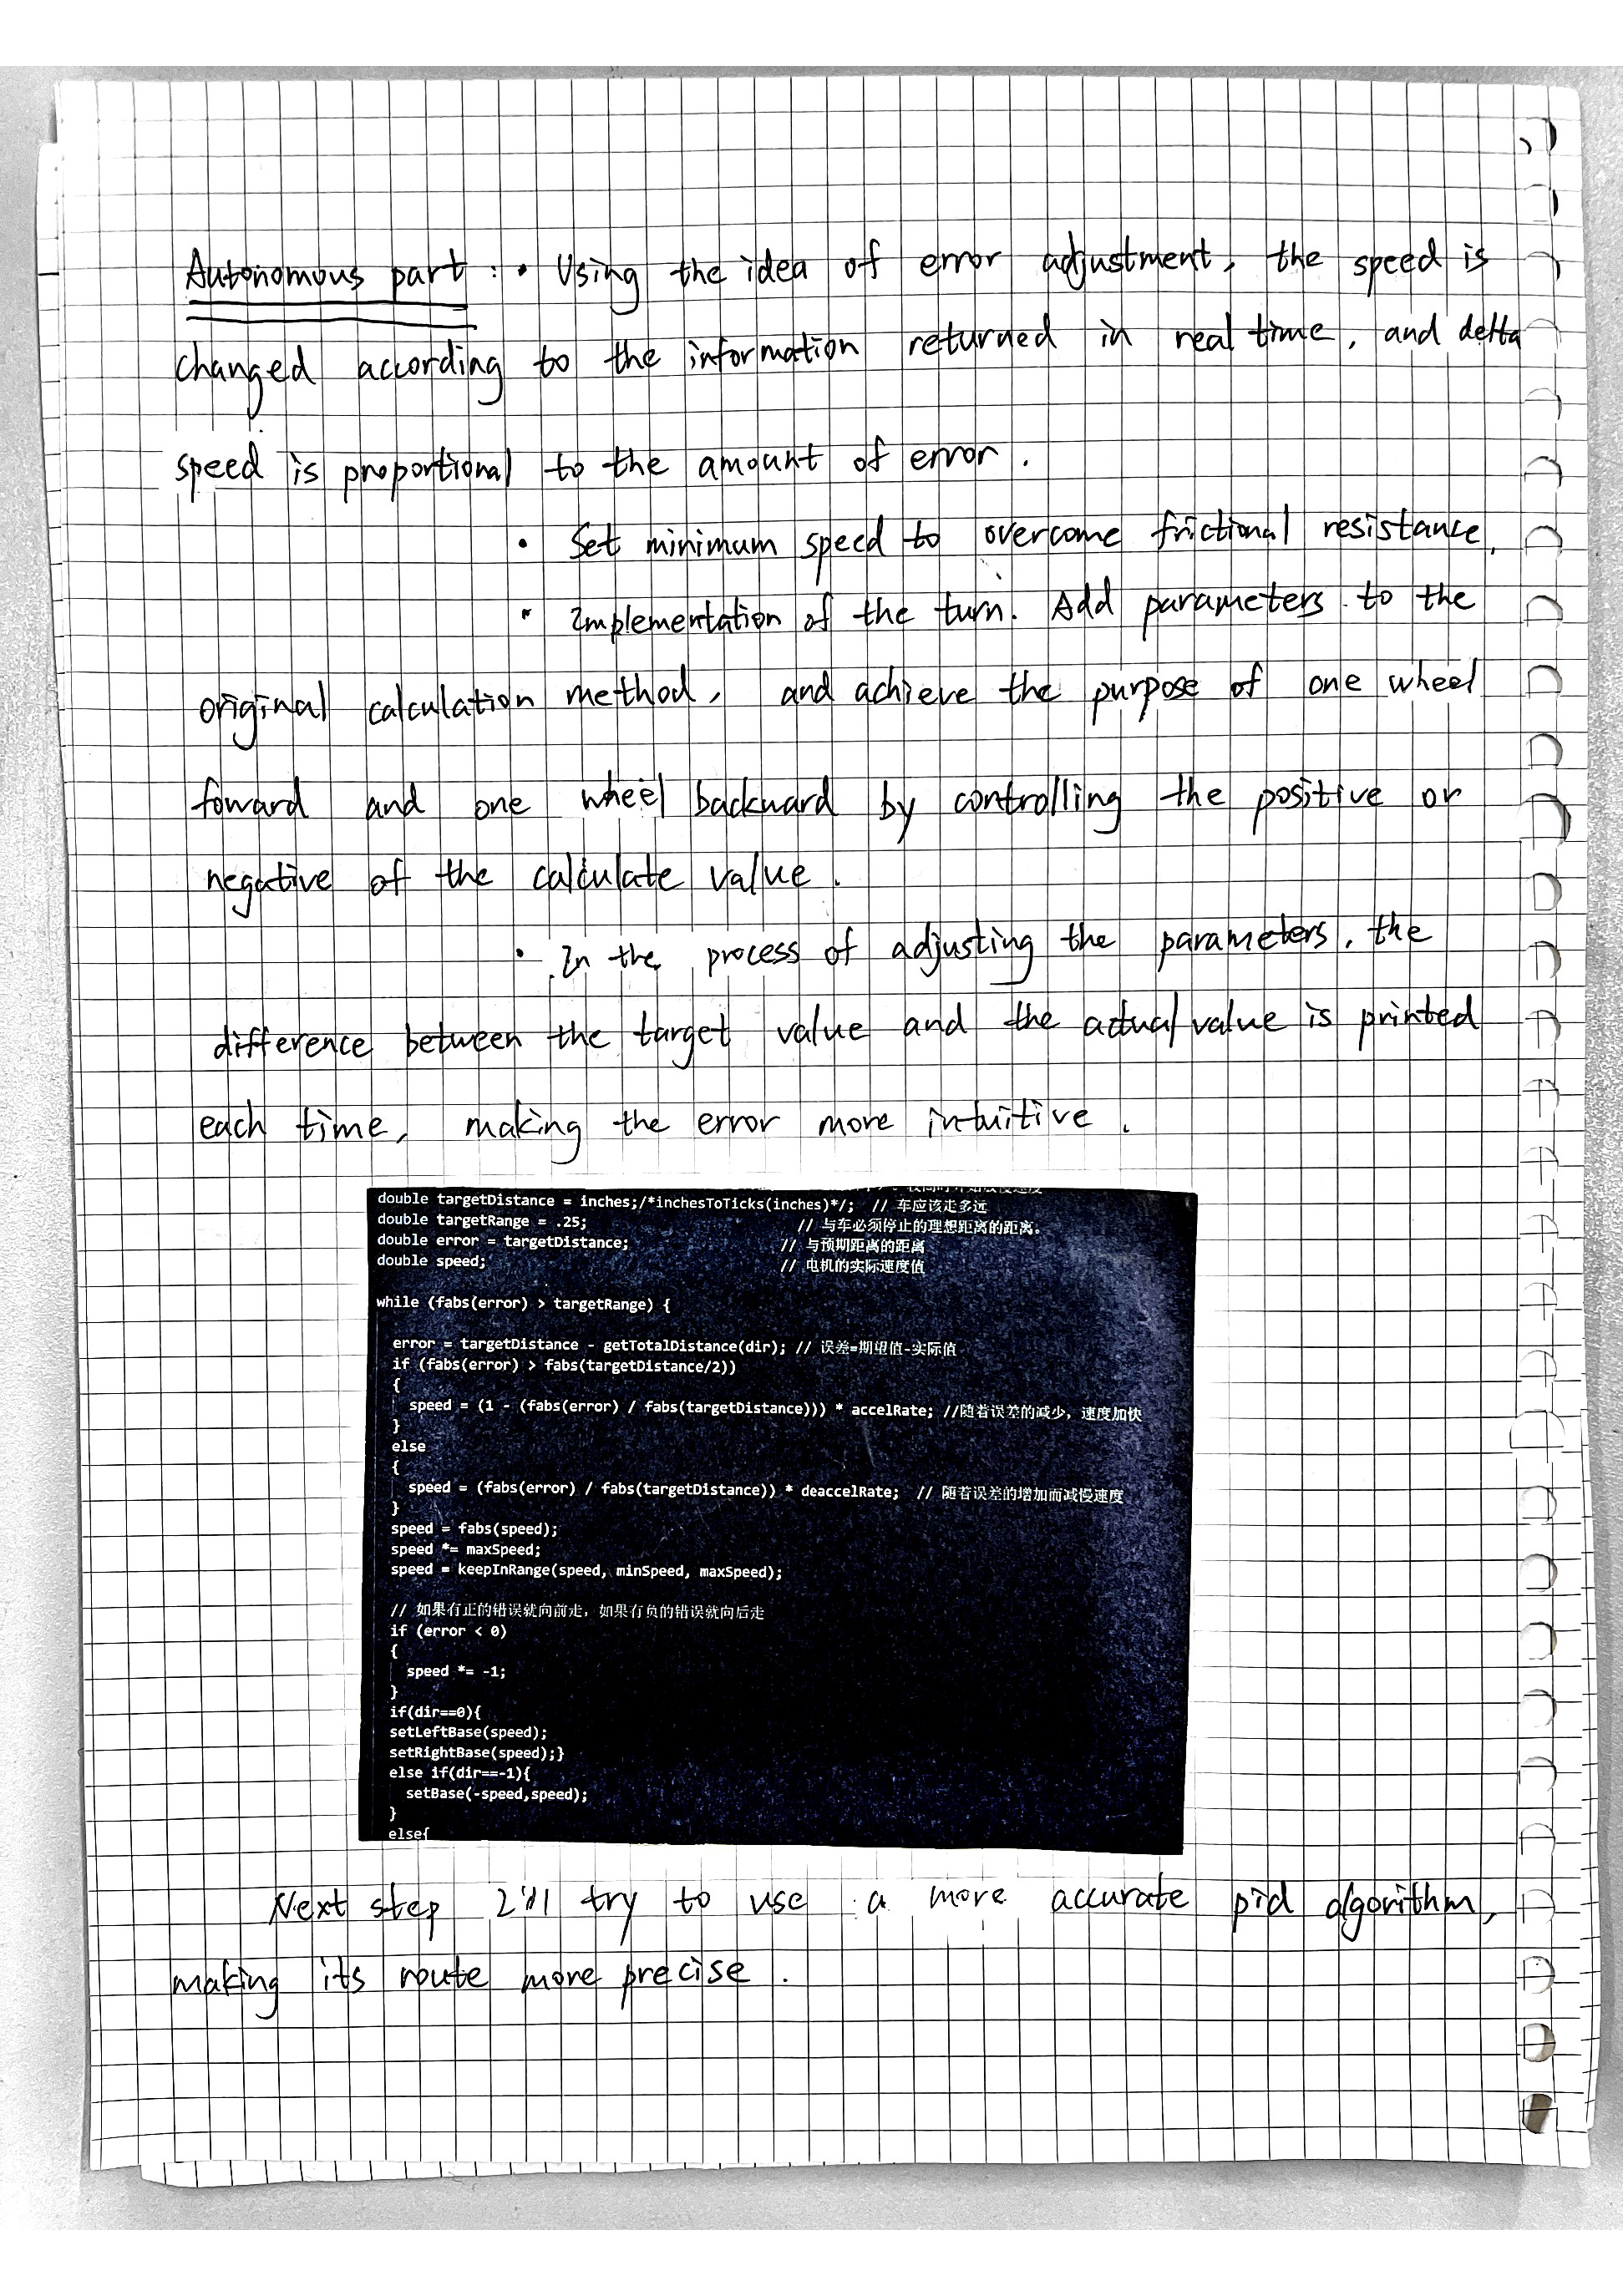 Autonomous part : • Using the idea of error adjustment, the speed is
changed according to the information returned in real time, and delta
speed is proportional to the amount of error.
• Set minimum speed to overcome frictional resistance.
• Implementation of the turn. Add parameters to the
original calculation method, and achieve the purpose of one wheel
foward and one wheel backward by controlling the positive or
negative of the calculate value.
• In the process of adjusting the parameters, the
difference between the target value and the actual value is printed
each time, making the error more intuitive.
double targetDistance = inches;/*inchesToTicks(inches)*/; // 车应该走多远
double targetRange = .25; // 与车必须停止的理想距离的距离。
double error = targetDistance; // 与预期距离的距离
double speed; // 电机的实际速度值
while (fabs(error) > targetRange) {
error = targetDistance - getTotalDistance(dir); // 误差=期望值-实际值
if (fabs(error) > fabs(targetDistance/2))
{
speed = (1 - (fabs(error) / fabs(targetDistance))) * accelRate; //随着误差的减少，速度加快
}
else
{
speed = (fabs(error) / fabs(targetDistance)) * deaccelRate; // 随着误差的增加而减慢速度
}
speed = fabs(speed);
speed *= maxSpeed;
speed = keepInRange(speed, minSpeed, maxSpeed);
// 如果有正的错误就向前走，如果有负的错误就向后走
if (error < 0)
{
speed *= -1;
}
if(dir==0){
setLeftBase(speed);
setRightBase(speed);}
else if(dir==-1){
setBase(-speed,speed);
}
else{
Next step I'll try to use a more accurate pid algorithm,
making its route more precise.